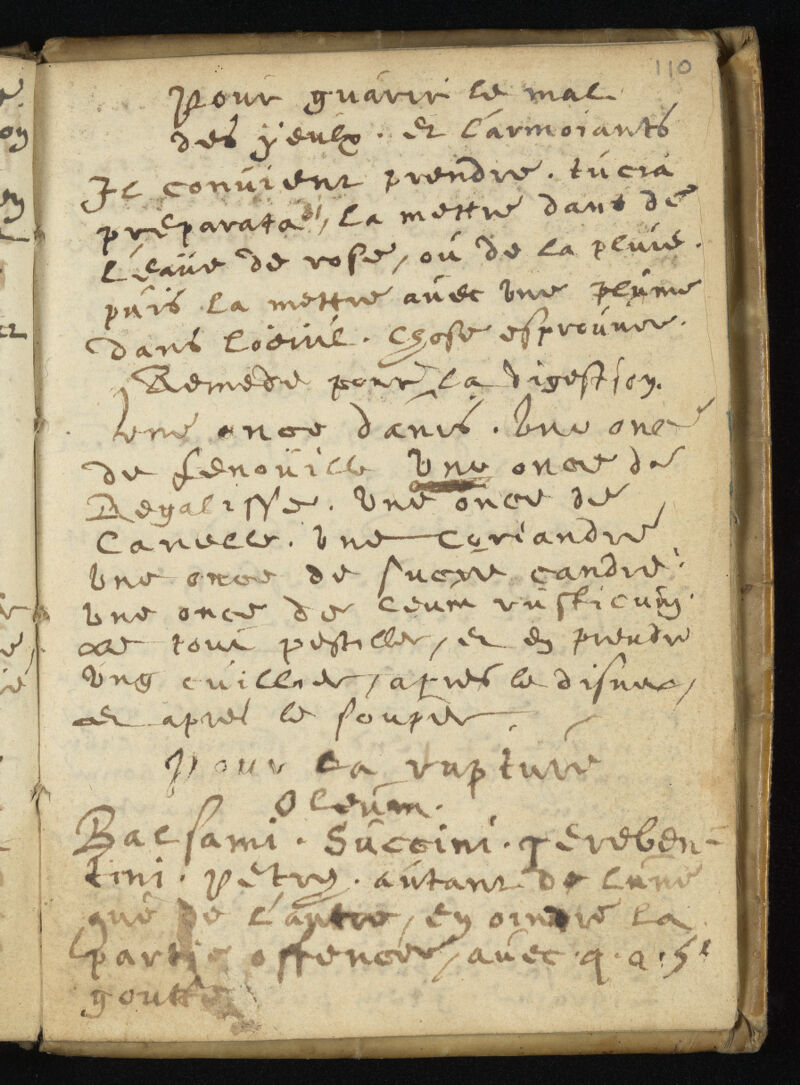 110
Pour guarir le mal
des yeulx. et larmoiants
Il convient prendre. tucia
preparata, la mettre dans de
l'eaue de rose, ou de la pluie.
puis la mettre avec une plume
dans loeiul. Chose esprouvee.
Remede pour la digestion.
Une once d'anis. Une once
de fenouille une once de
Regalisse. Une once de
Canelle. Une Coriandre
Une once de sucre candie.
Une once de Ceum rusticum.
le tout pestiller, et en prendre
Ung cuillier, apres le disner,
et apres le souper
Pour la rupture
Oleum.
Balsami. Succini. Tereben-
tini. Petry. autant de l'une
que de l'autre, en oindre la
partie offencee, avec. 4. a. 5.
goutte